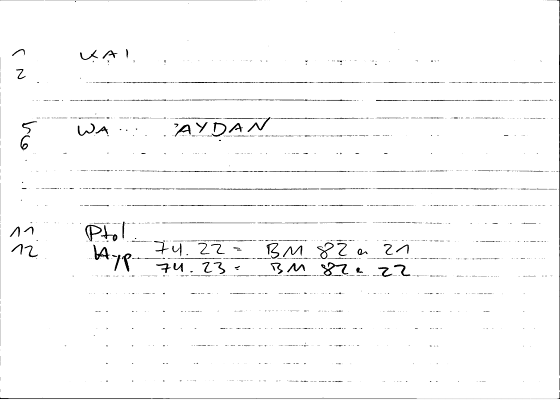 1 KAI
2
5 WA... 'AYDAN
6
11 Ptol.
12 Hyp. 74.22 = BM 82 a 21
74.23 = BM 82 a 22